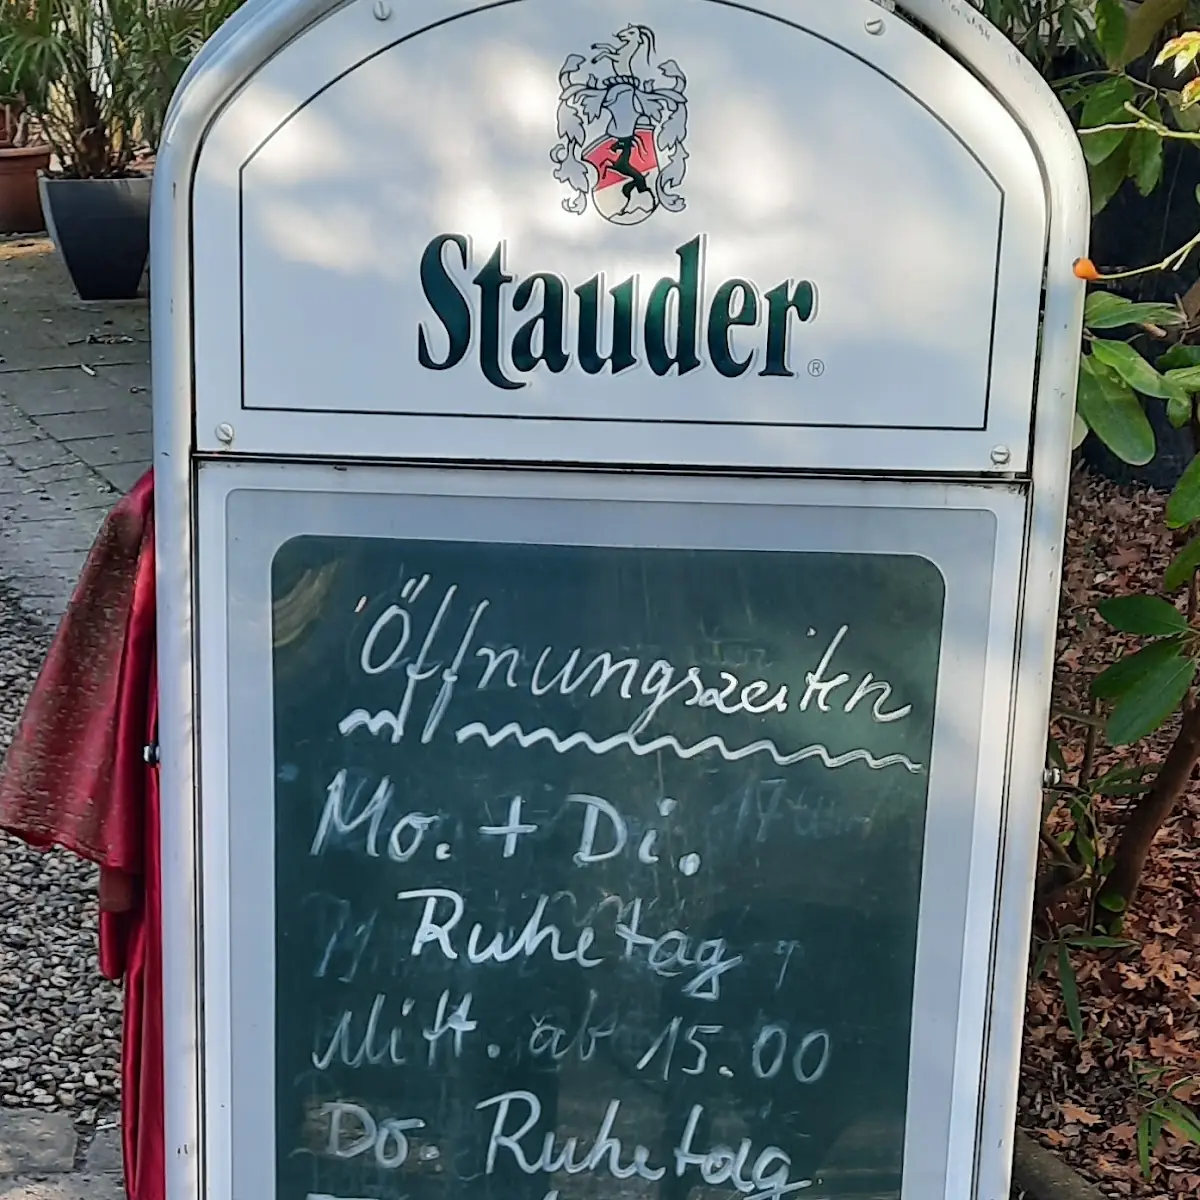 Stauder®
Öffnungszeiten
Mo. + Di.
Ruhetag
Mitt. ab 15.00
Do. Ruhetag